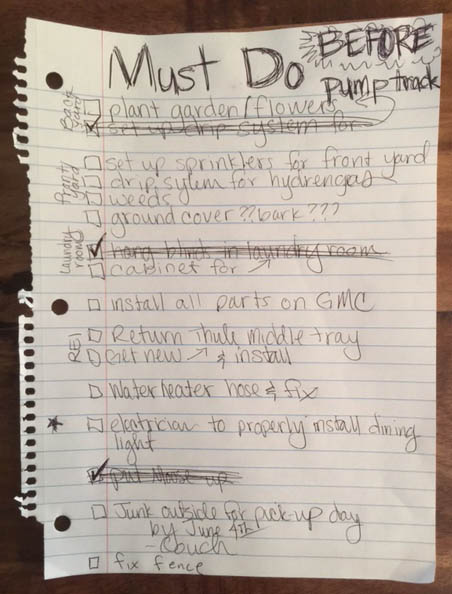 Must Do BEFORE
pumptrack
Back Yard
plant garden/flowers
set up drip system for
Front Yard
set up sprinklers for front yard
drip sytem for hydrengeas
weeds
ground cover??bark???
Laundry room
hang blinds in laundry room
cabinet for ↗
install all parts on GMC
REI
Return Thule middle tray
Get new ↗ & install
Water heater hose & fix
electrician to properly install dining
light
put up
Junk outside for pick-up day
by June 4th
-Couch
fix fence